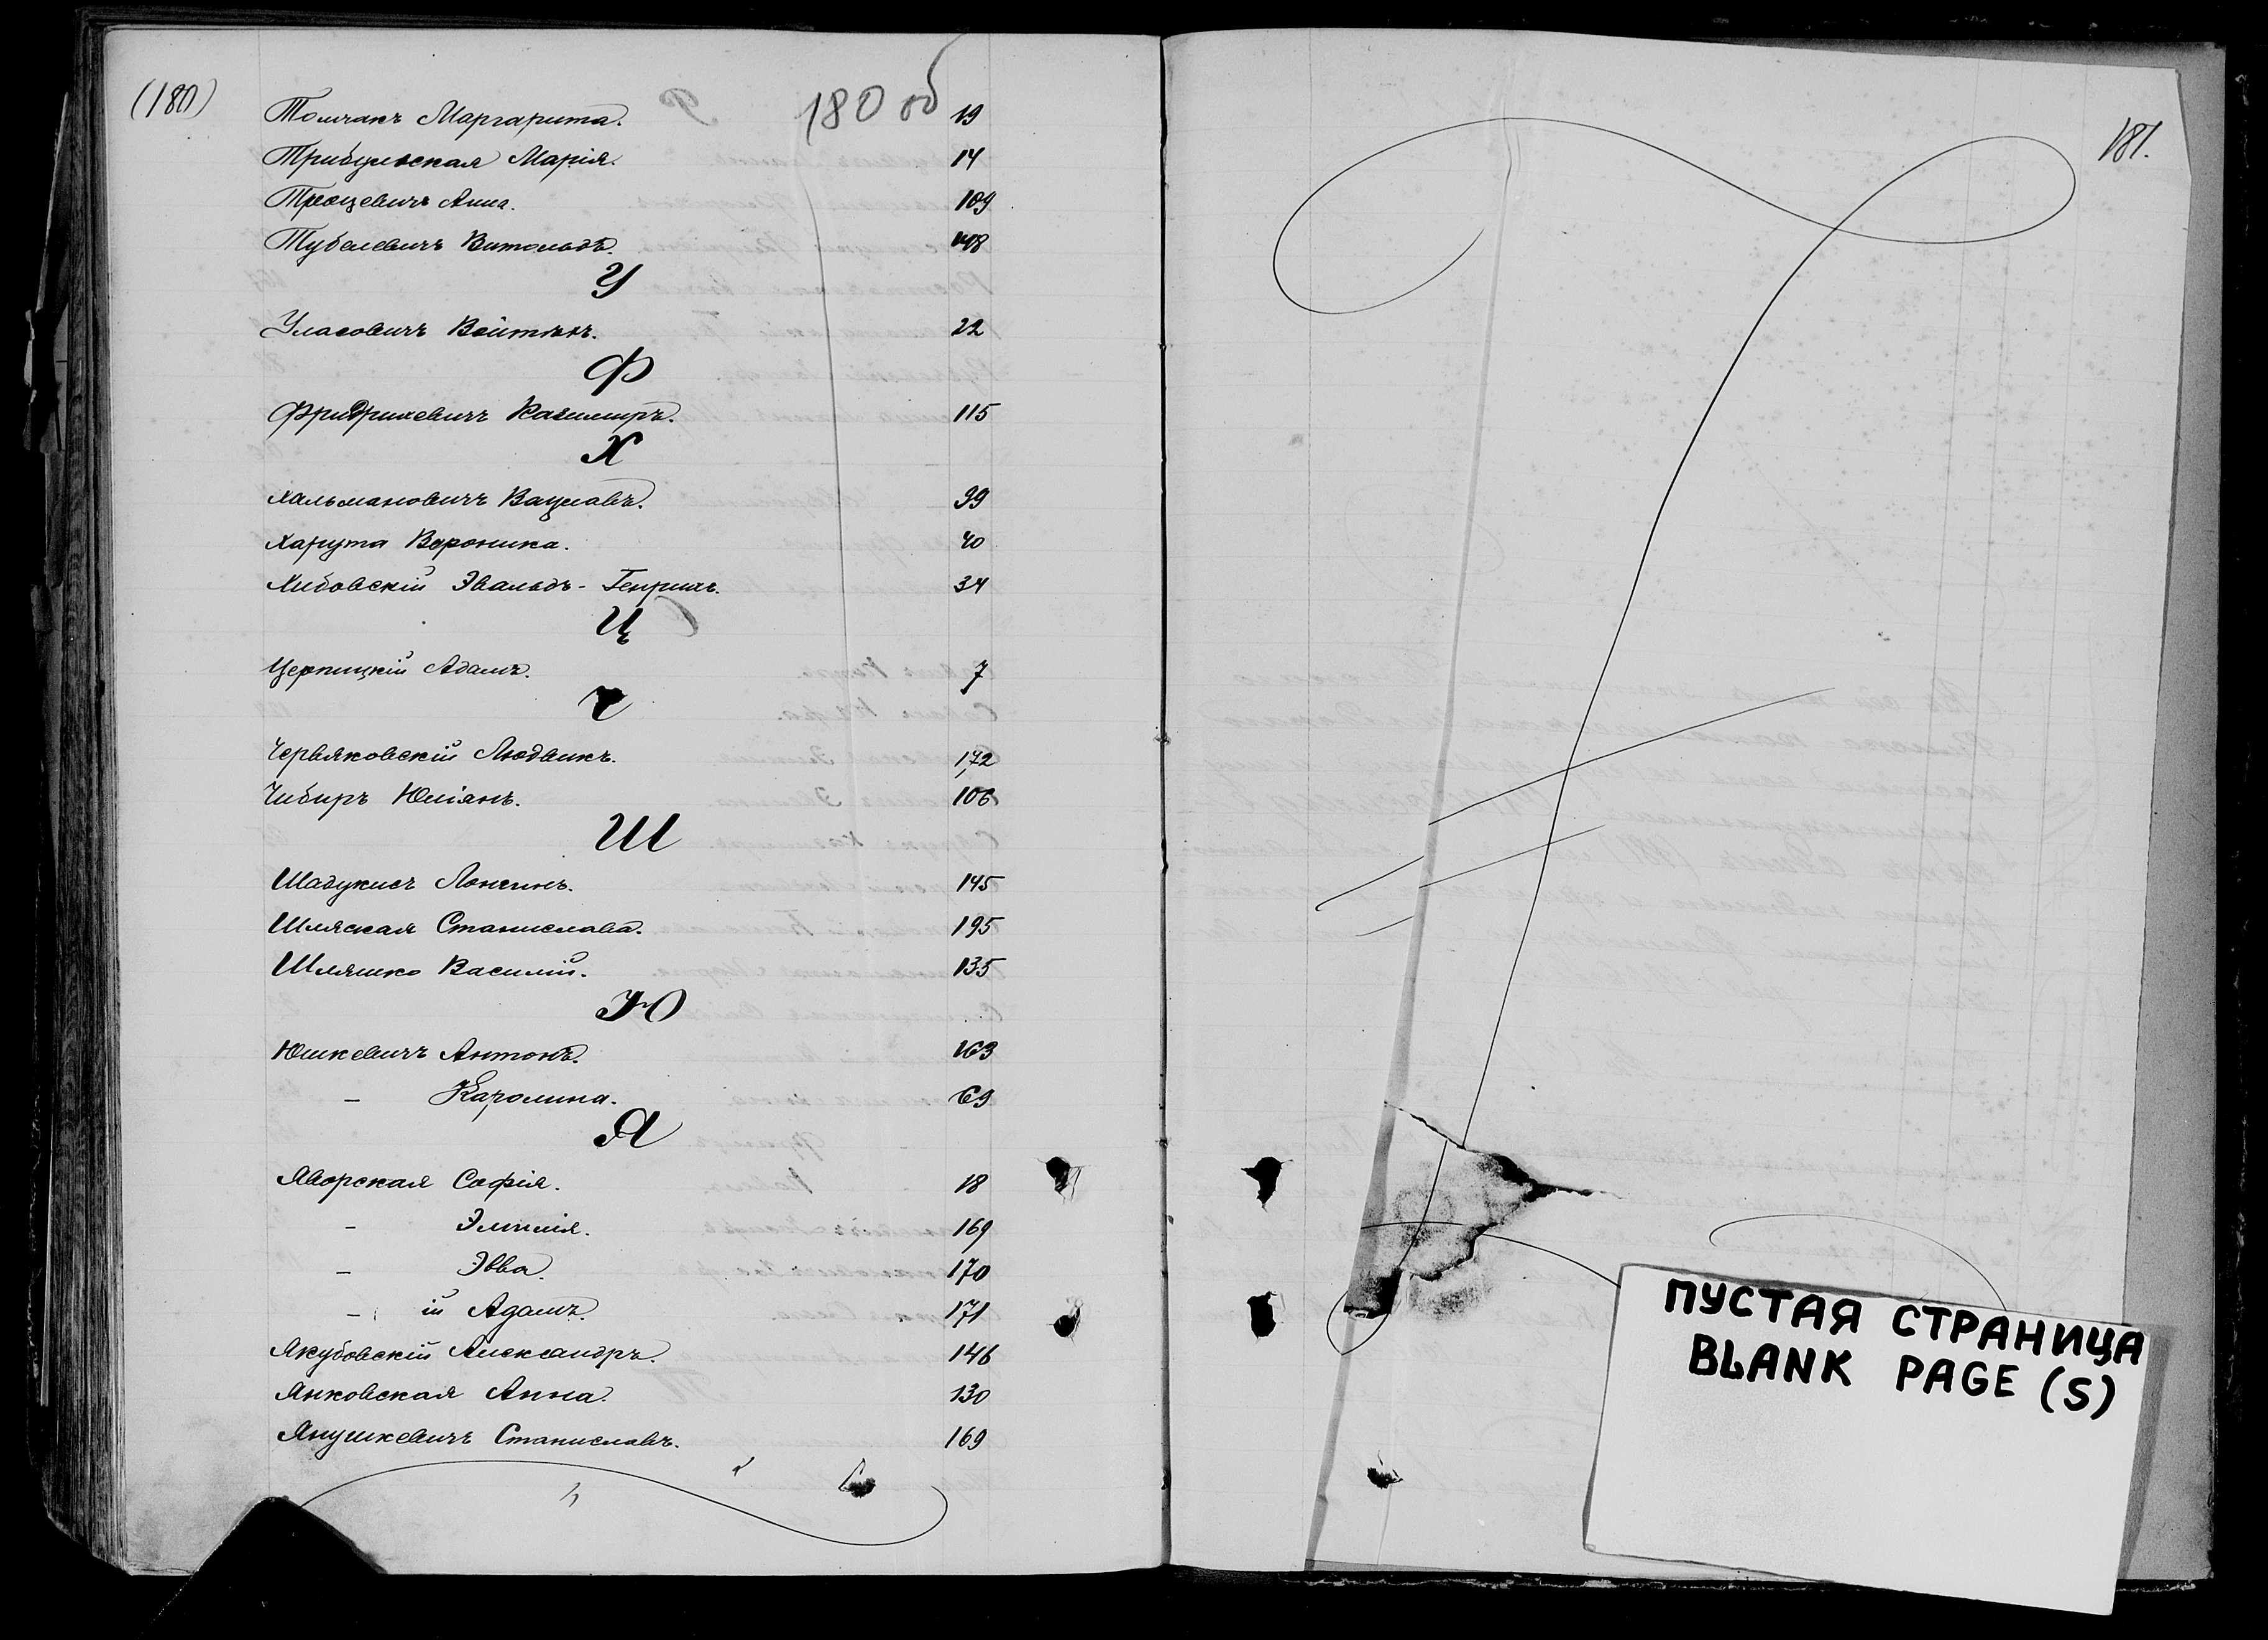 (180)
180 об
Томчакъ Маргарита. 19
Трибульская Марія. 14
Троцевичъ Анна. 109
Тубелевичъ Витольдъ. 148
У
Уласовичъ Войтѣхъ. 22
Ф
Фридрихевичъ Казимиръ. 115
Х
Хальмановичъ Вацлавъ. 99
Харута Вероника. 40
Хибовскій Эвальдъ-Генрихъ. 34
Ц
Церпицкій Адамъ. 7
Ч
Червяковскій Людвикъ. 172
Чибиръ Юліянъ. 106
Ш
Шадукисъ Лонгинъ. 145
Шляская Станислава. 195
Шляшко Василій. 135
Ю
Юшкевичъ Антонъ. 163
– Каролина. 69
Я
Яворская Софія. 18
– Эмилія. 169
– Эвва. 170
– ій Адамъ. 171
Якубовскій Александръ. 146
Янковская Анна. 130
Янушкевичъ Станиславъ. 169
181.
ПУСТАЯ СТРАНИЦА
BLANK PAGE (S)